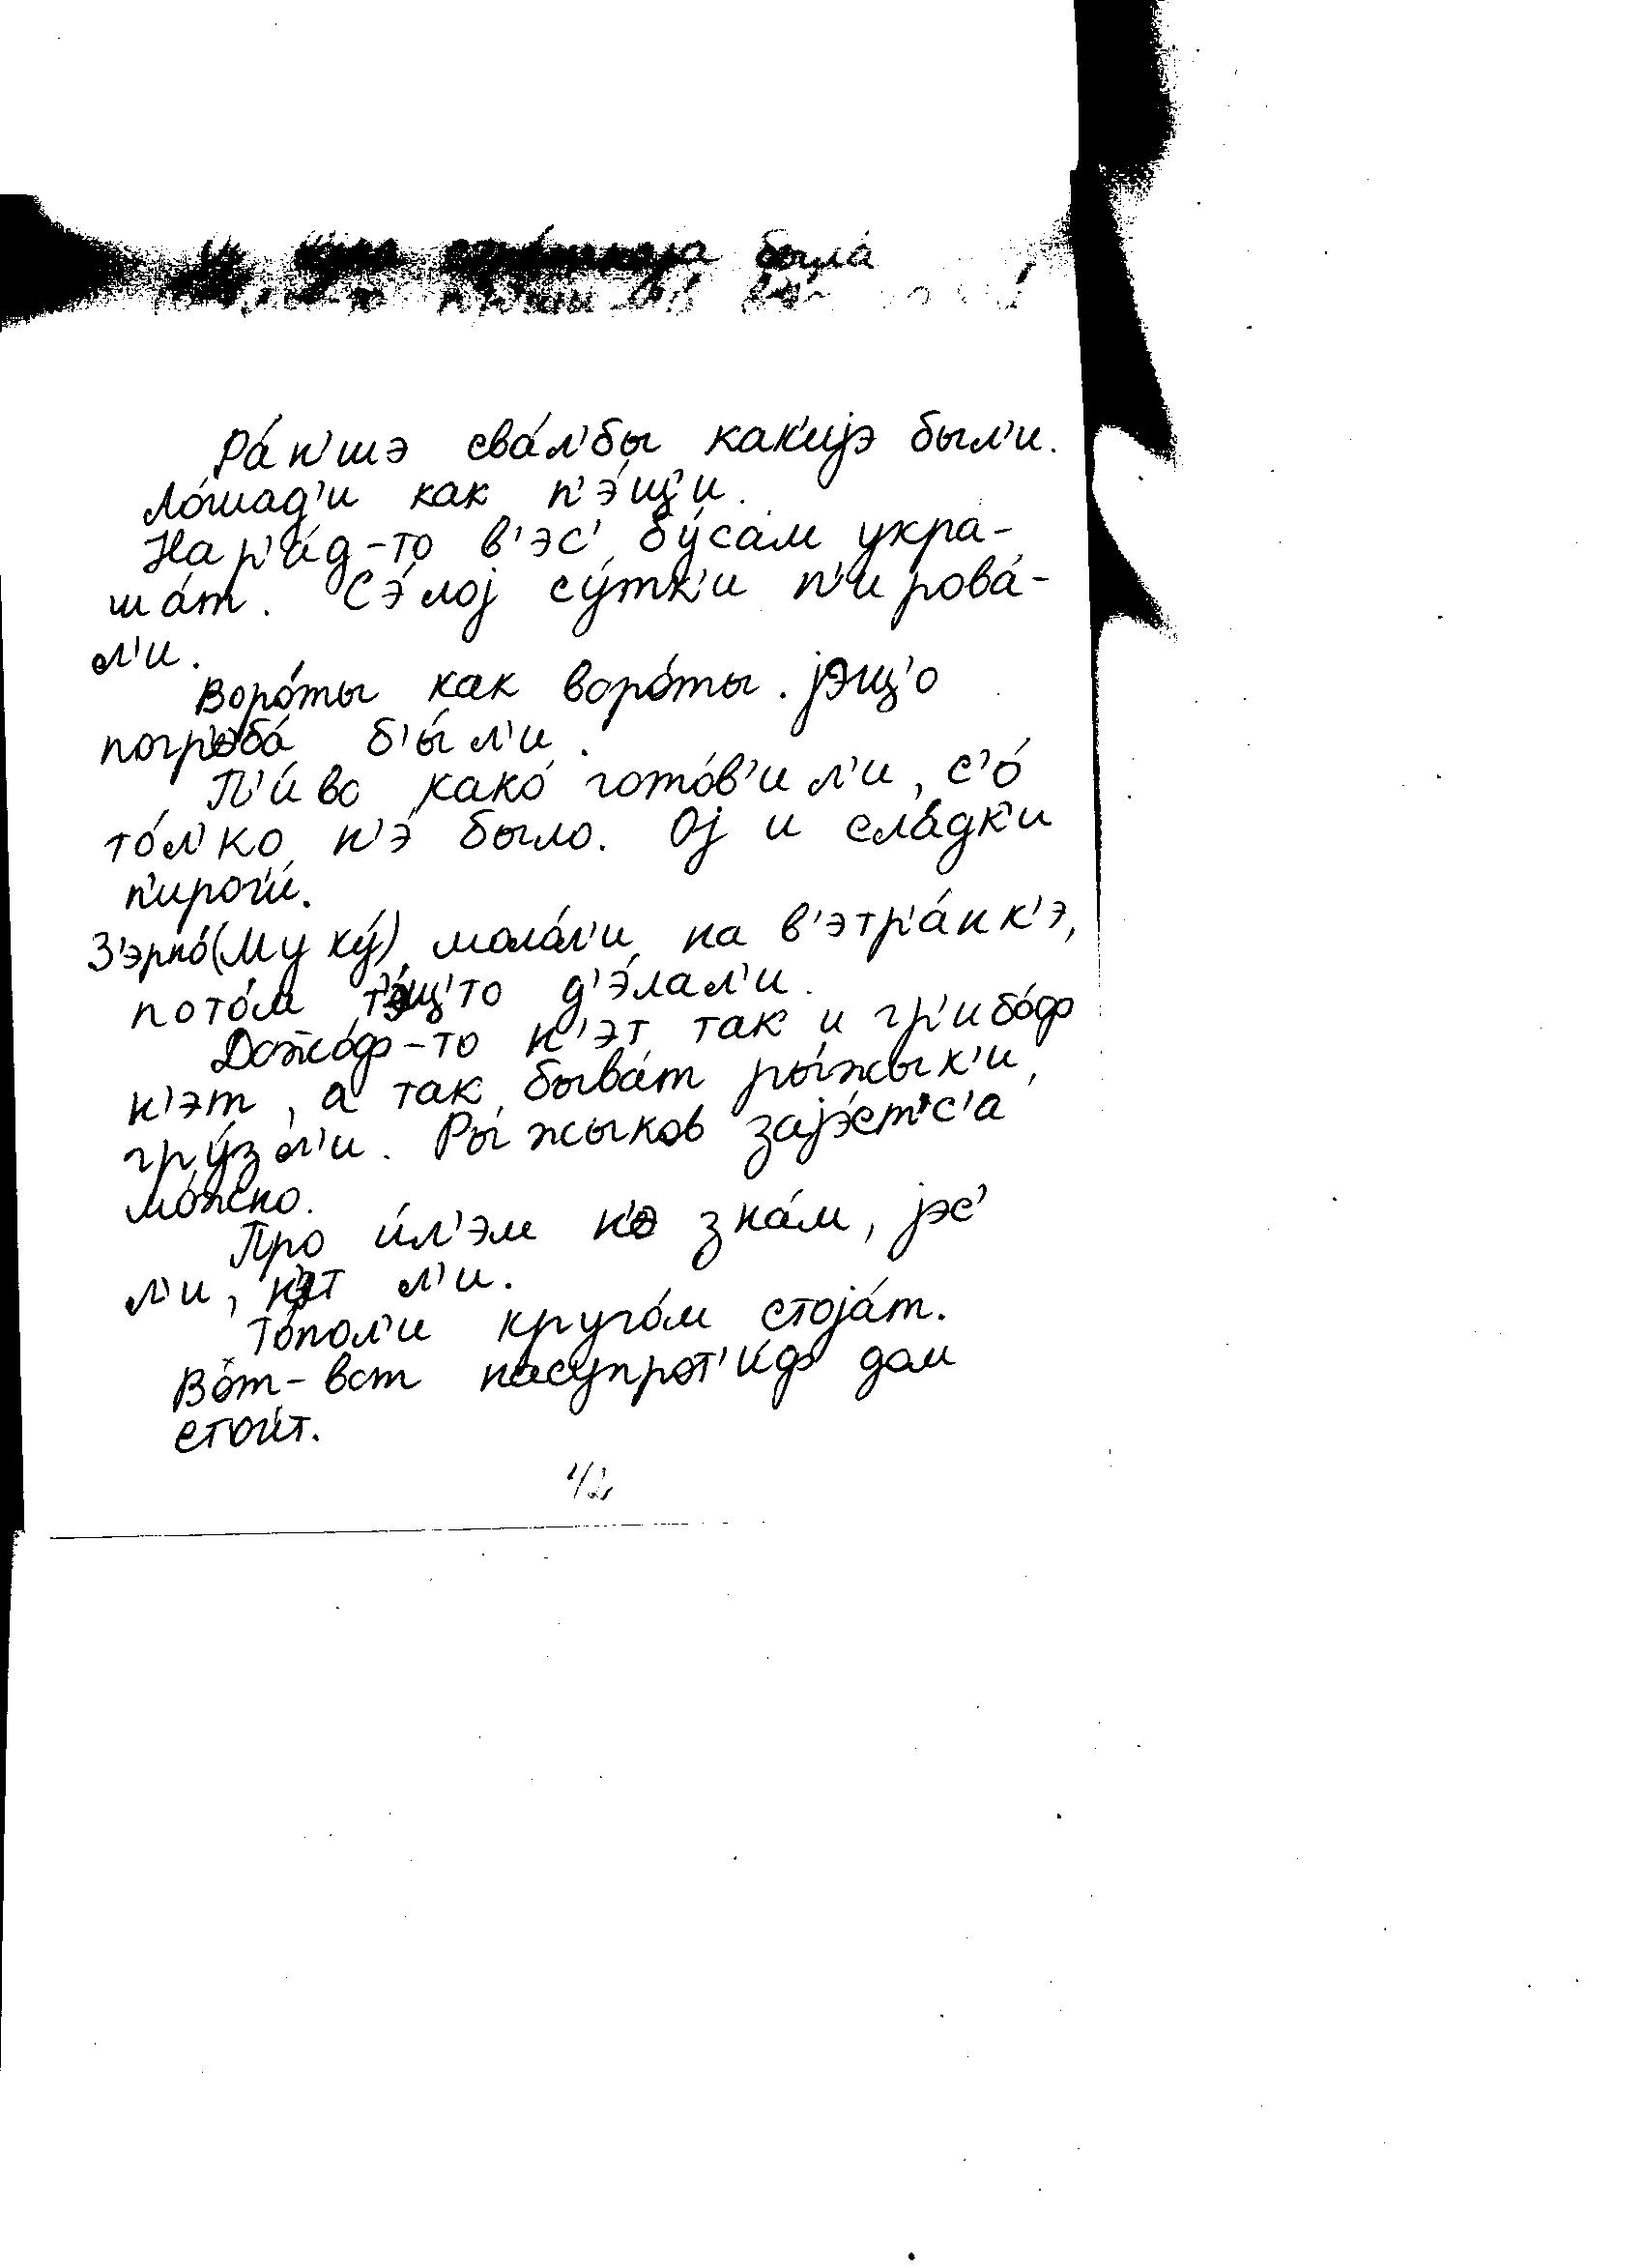 была́
Ра́н'шэ сва́л'бы как'ијэ был'и.
Ло́шад'и как п'э́щ'и.
Нар'и́д-то в'эс' бу́сам укра-
ша́т. Сэ́лој су́тк'и п'ирова́-
л'и.
Воро́ты как воро́ты. јэщ'о
погр'эба́ б'ы́л'и.
П'и́во како́ гото́в'ил'и, с'о́
то́л'ко н'э́ было. Ој и сла́дк'и
п'ирог'и́.
З'эрно́(Муку́) мола́л'и на в'этр'а́нк'э,
пото́м т'э́щ'то д'э́лал'и.
Дожжо́ф-то н'эт так и гр'ибо́ф
н'эт, а так быва́т ры́жык'и,
гру́зл'и. Ры́жыков зајэ́ст'с'а
мо́жно.
Про и́л'эм н'э зна́м, јэс'
л'и, н'эт л'и.
То́пол'и круго́м стоја́т.
Во́т-вот насупрот'и́ф дом
стои́т.
42